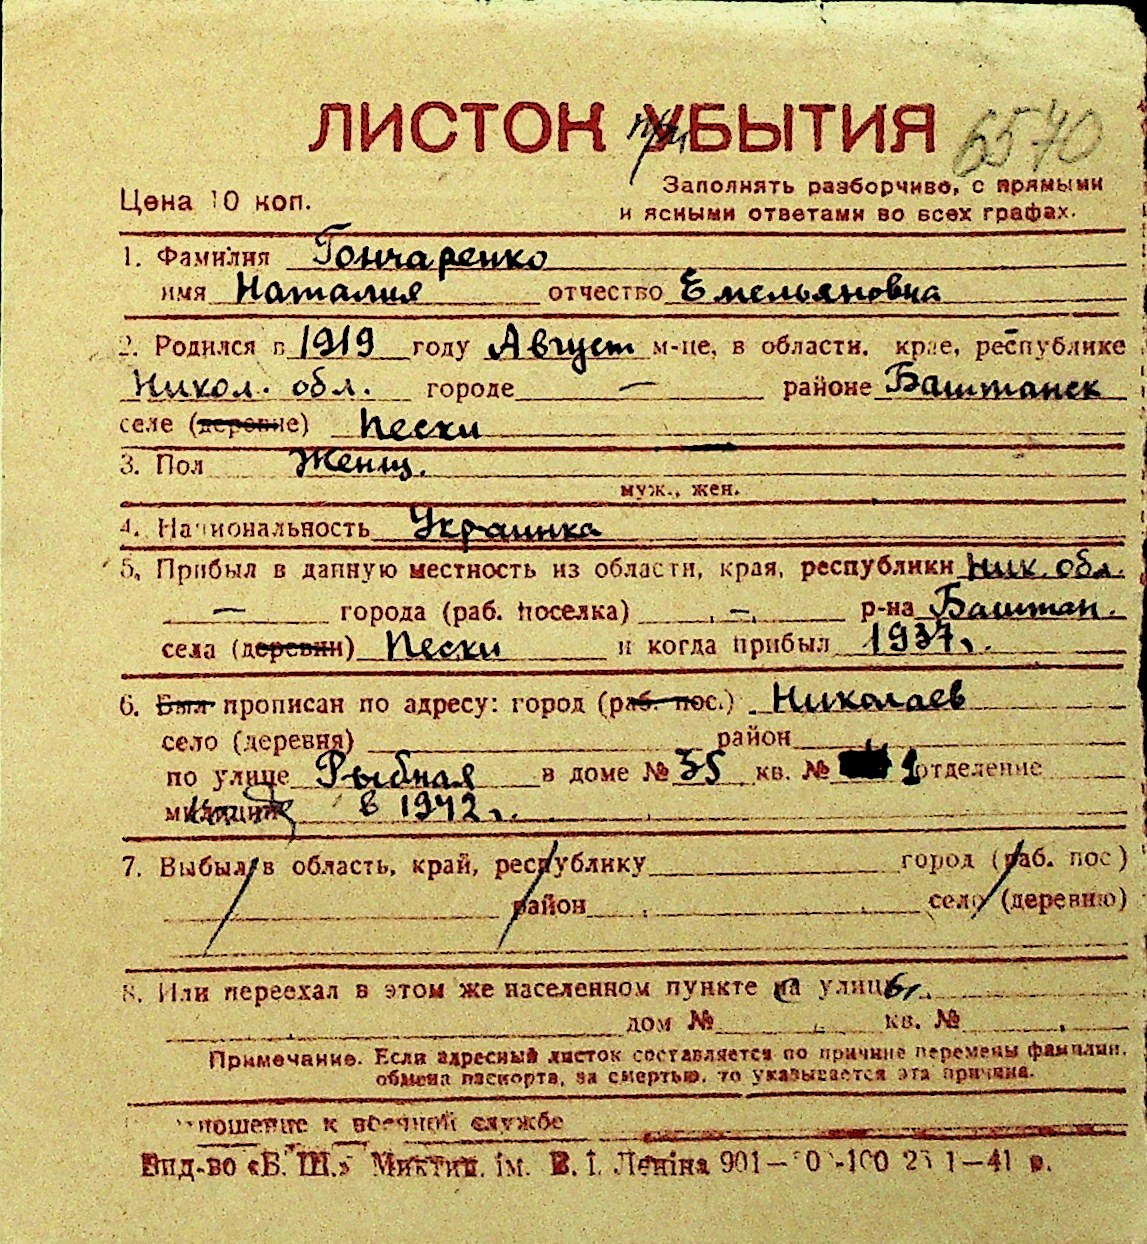 ЛИСТОК УБЫТИЯ 6570
Цена 10 коп.
Заполнять разборчиво, с прямыми
и ясными ответами во всех графах.
1. Фамилия Гончаренко
имя Наталия отчество Емельяновна
2. Родился в 1919 году Август м-це, в области, крае, республике
Никол. обл. городе — районе Баштанск
селе (деревне) Пески
3. Пол Женщ.
муж., жен.
4. Национальность Украинка
5. Прибыл в данную местность из области, края, республики Ник. обл.
— города (раб. поселка) — р-на Баштан.
села (деревни) Пески и когда прибыл 1937 г.
6. Был прописан по адресу: город (раб. пос.) Николаев
село (деревня) район
по улице Рыбная в доме № 35 кв. № 1 отделение
милиции в 1942 г.
7. Выбыл в область, край, республику город (раб. пос)
район село (деревню)
8. Или переехал в этом же населенном пункте на улицу
дом № кв. №
Примечание. Если адресный листок составляется по причине перемены фамилии,
обмена паспорта, за смертью, то указывается эта причина.
ношение к военной службе
Вид-во «Б. Ш.» Миктип. ім. В. І. Леніна 901— 1—41 р.